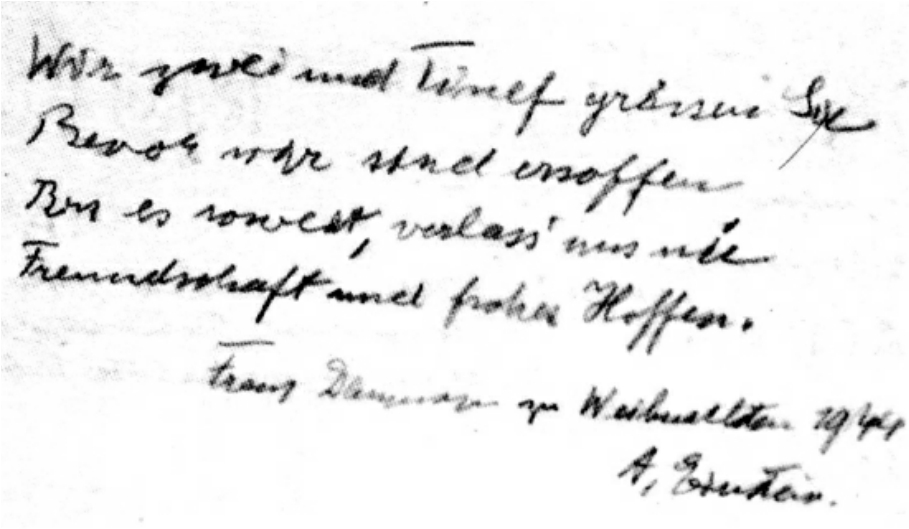 Wir zwei und Tinef grüssen Sie
Bevor wir sind ersoffen
Bis es soweit, verlass' uns nie
Freundschaft und frohes Hoffen.
zu Weihnachten 1944
A. Einstein.